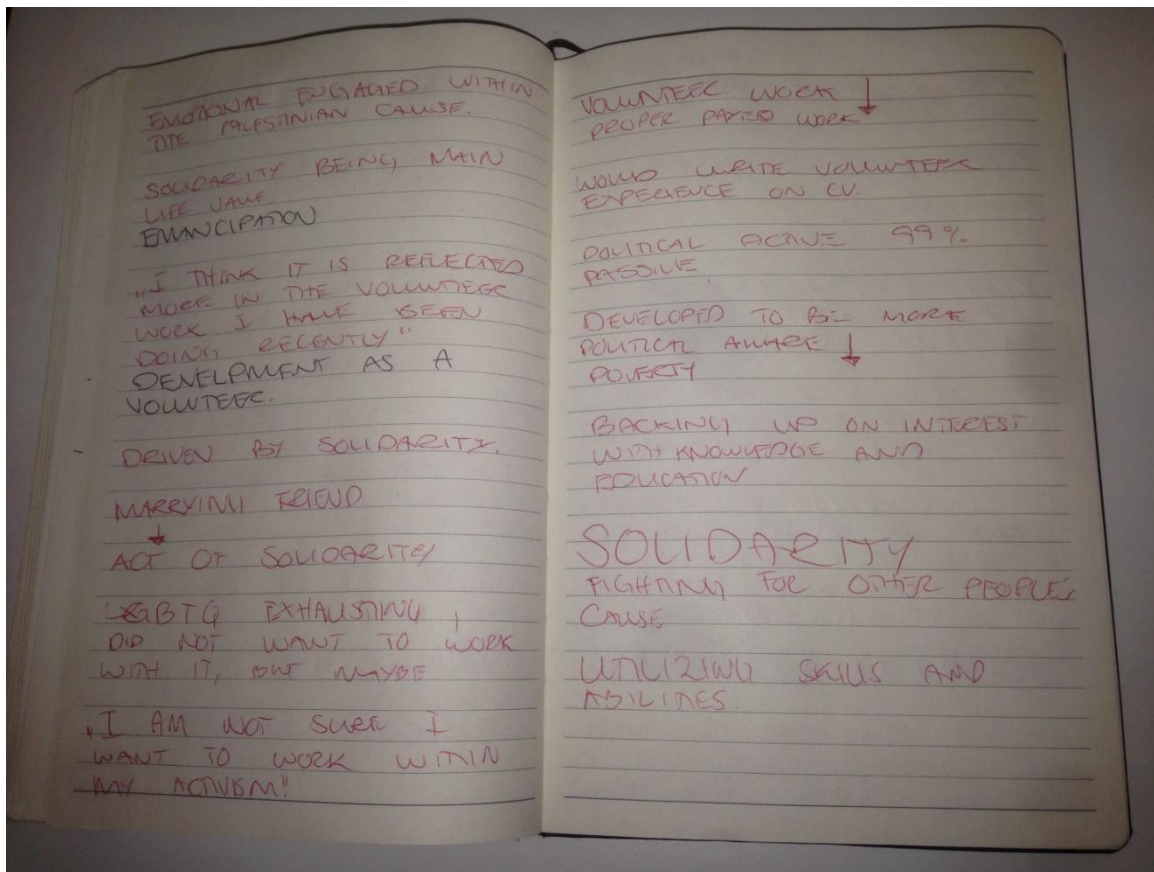 EMOTIONAL ENGAGED WITHIN
THE PALESTINIAN CAUSE.
SOLIDARITY BEING MAIN
LIFE VALUE.
EMANCIPATION
„I THINK IT IS REFLECTED
MORE IN THE VOLUNTEER
WORK I HAVE BEEN
DOING RECENTLY"
DEVELPMENT AS A
VOLUNTEER.
DRIVEN BY SOLIDARITY.
MARRYING FRIEND
↓
ACT OF SOLIDARITY
LGBTQ EXHAUSTING,
DID NOT WANT TO WORK
WITH IT, BUT MAYBE
„I AM NOT SURE I
WANT TO WORK WITHIN
MY ACTIVISM"
VOLUNTEER WORK ↓
PROPER PAYED WORK
WOULD WRITE VOLUNTEER
EXPERIENCE ON CV.
POLITICAL ACTIVE 99%
PASSIVE.
DEVELOPED TO BE MORE
POLITICAL AWARE ↓
POVERTY
BACKING UP ON INTEREST
WITH KNOWLEDGE AND
EDUCATION
SOLIDARITY
FIGHTING FOR OTHER PEOPLE'S
CAUSE
UTILIZING SKILLS AND
ABILITIES